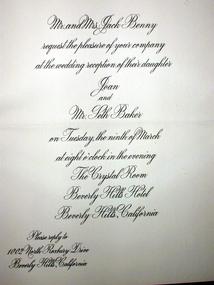 Mr. and Mrs. Jack Benny
request the pleasure of your company
at the wedding reception of their daughter
Joan
and
Mr. Seth Baker
on Tuesday, the ninth of March
at eight o'clock in the evening
The Crystal Room
Beverly Hills Hotel
Beverly Hills, California
Please reply to
1002 North Roxbury Drive
Beverly Hills, California